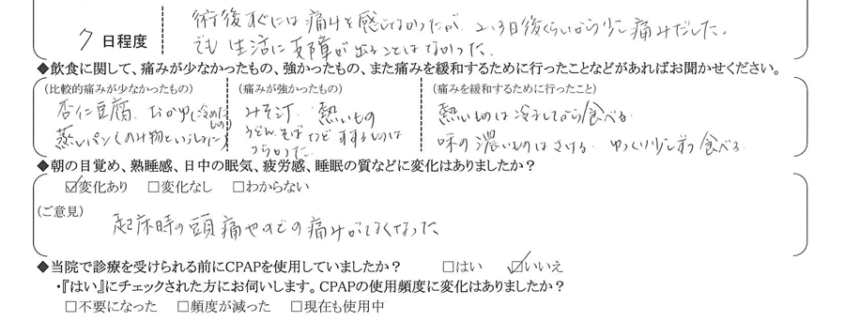 術後すぐには痛みを感じなかったが、2、3日後くらいから少し痛みだした。
7 日程度 でも生活に支障が出ることはなかった。
◆飲食に関して、痛みが少なかったもの、強かったもの、また痛みを緩和するために行ったことなどがあればお聞かせください。
(比較的痛みが少なかったもの) (痛みが強かったもの) (痛みを緩和するために行ったこと)
杏仁豆腐、おかゆ(冷めたもの) みそ汁、熱いもの 熱いものは冷ましてから食べる。
蒸しパン(のみ物といっしょに) うどん、そばなどすするものは 味の濃いものはさける。ゆっくり少しずつ食べる。
つらかった。
◆朝の目覚め、熟睡感、日中の眠気、疲労感、睡眠の質などに変化はありましたか？
☑変化あり □変化なし □わからない
(ご意見)
起床時の頭痛やのどの痛みがなくなった
◆当院で診療を受けられる前にCPAPを使用していましたか？ □はい ☑いいえ
・『はい』にチェックされた方にお伺いします。CPAPの使用頻度に変化はありましたか？
□不要になった □頻度が減った □現在も使用中